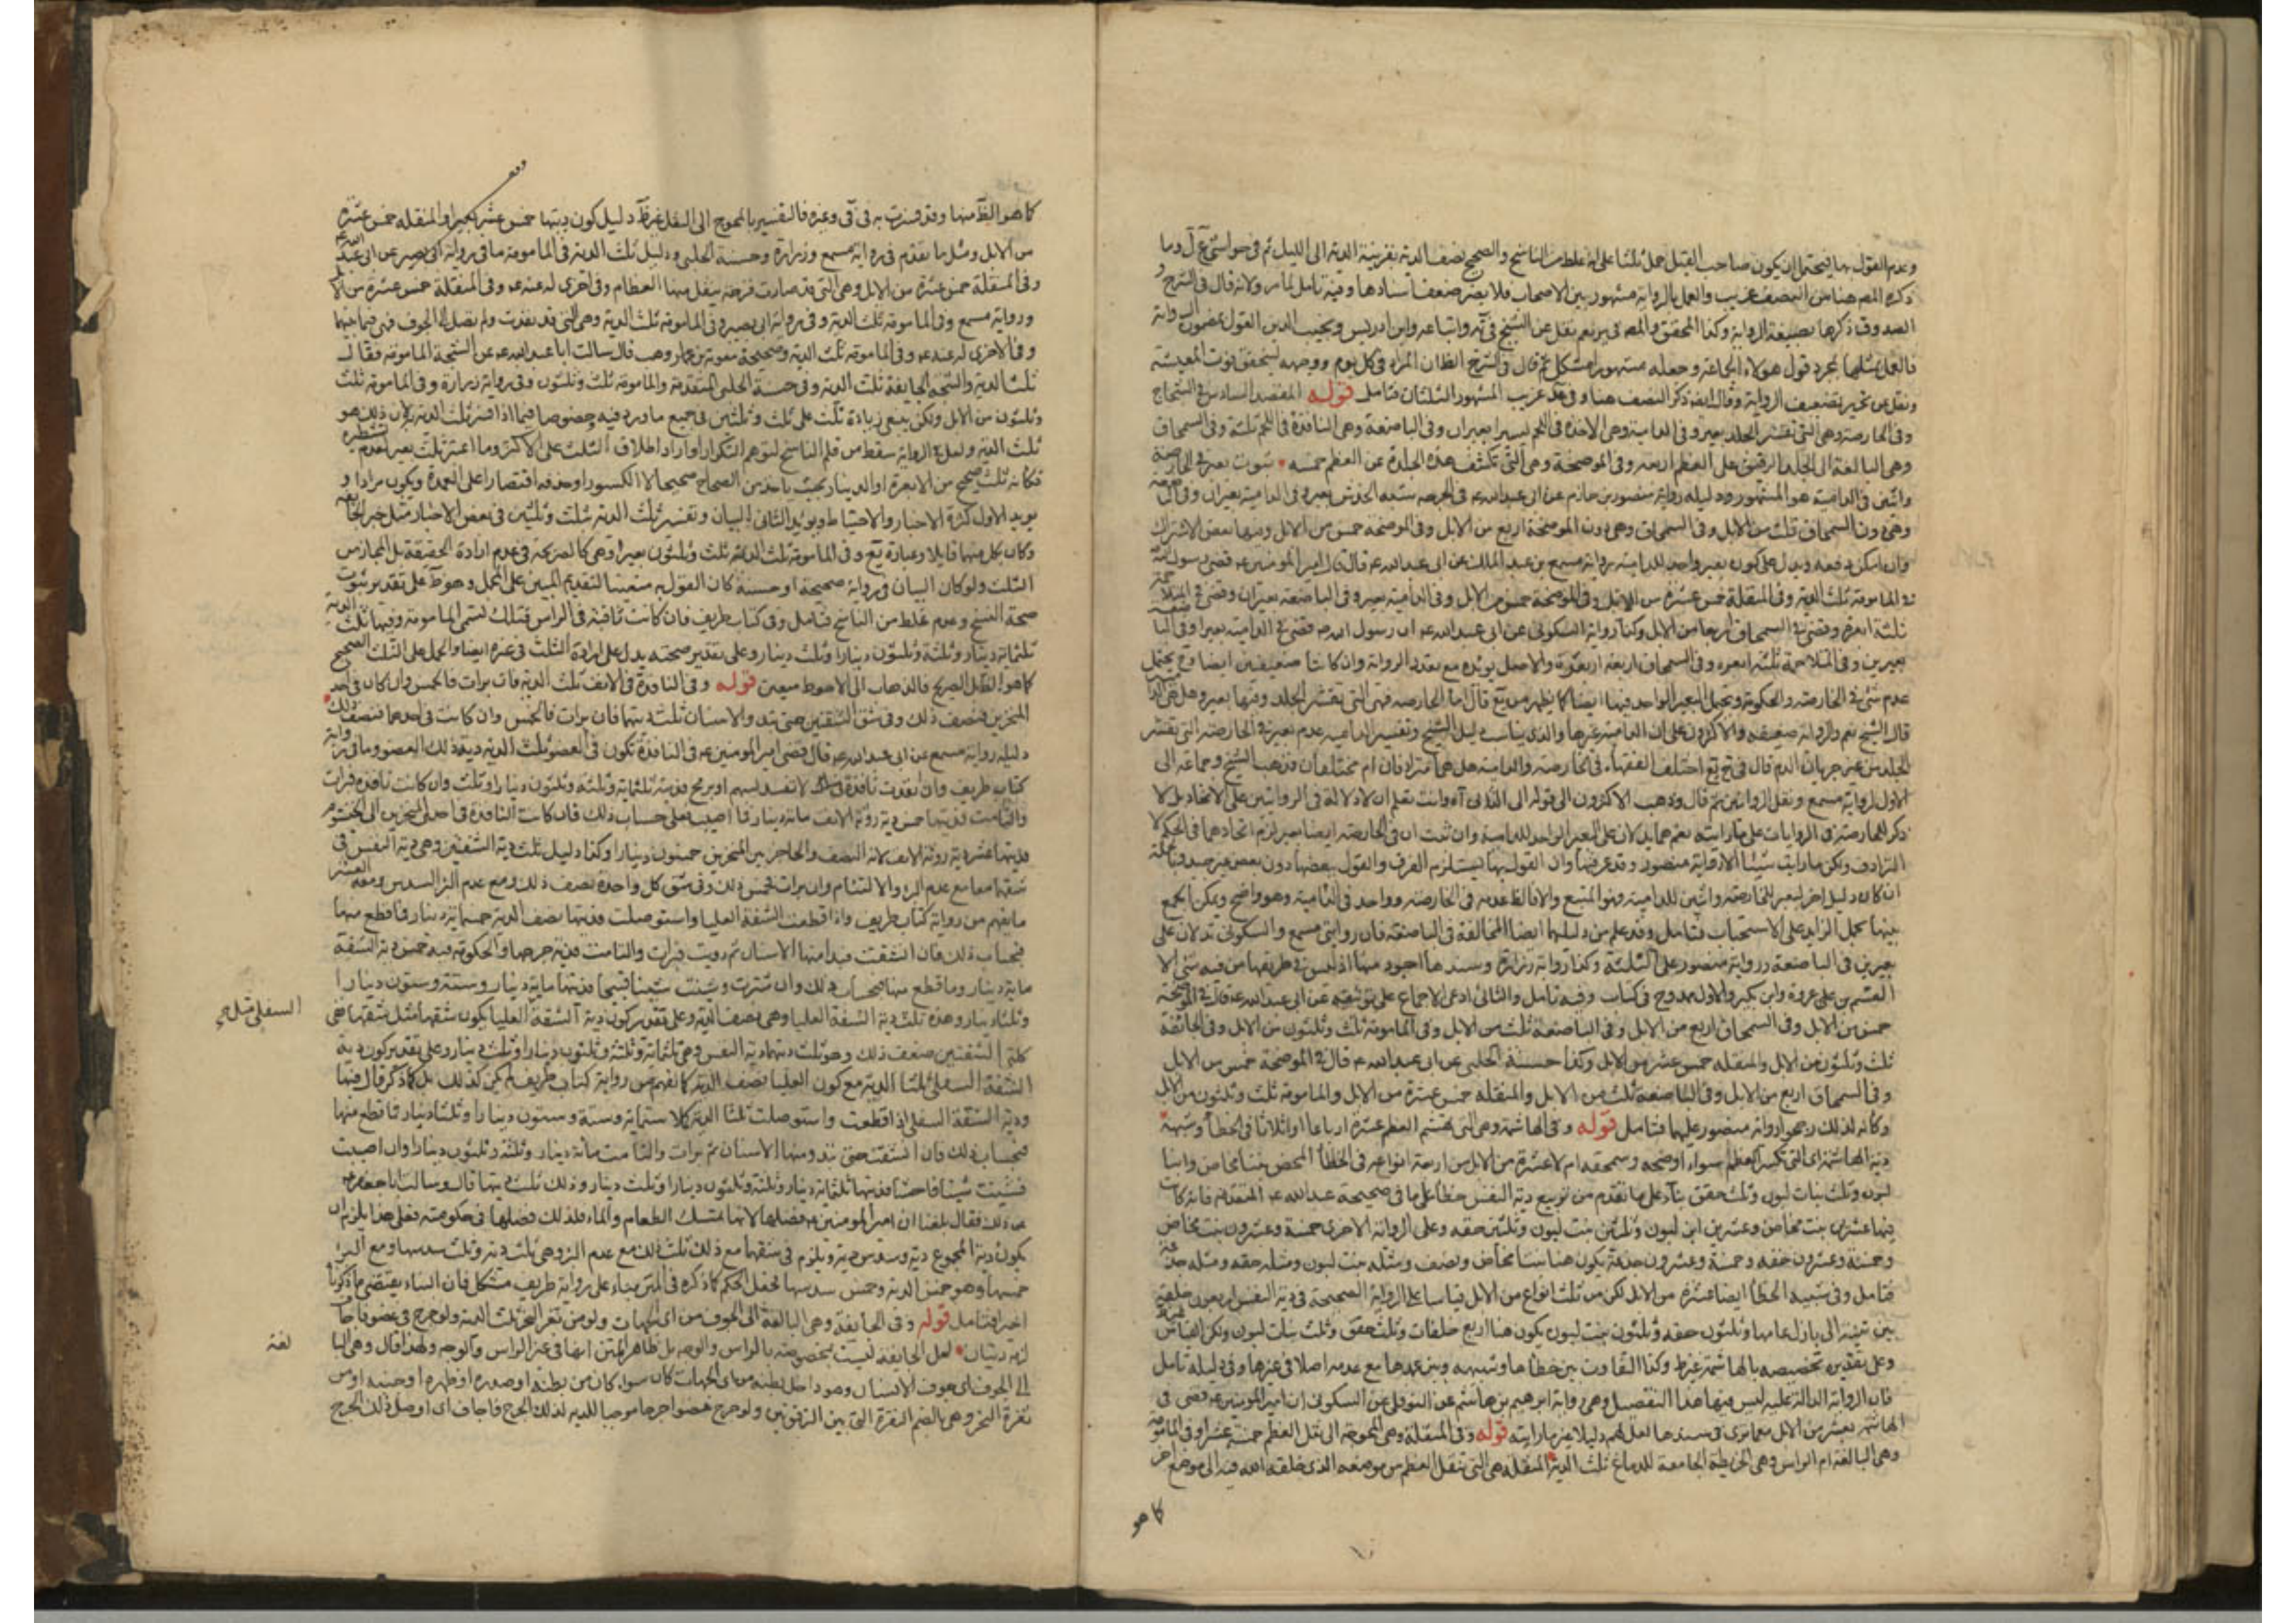 وعدم القول بها فيحتمل ان يكون صاحب القيل حمل ثلثا على انه غلط من الناسخ والصحيح نصف الدية بقرينة الدية الى الليل ثم في حواشي
ذكره المصـ هنا من النصف غريب والعمل بالرواية مشهور بين الاصحاب فلا يضر ضعف اسنادها وفيه تامل لما مر ولانه قال في الشرح
الصدوق ذكرها بصيغة الرواية وكذا المحقق والمصـ في ير نعم نقل عن الشيخ في يه واتباعه وابن ادريس ونجيب الدين القول بمضمون الرواية
فالعمل بمثلها بمجرد قول هولاء الجماعة وجعله مشهورا مشكل ثم قال في الشرح الظ ان المراد في كل يوم ووجهه لتحقق فوت المعيشة
ونقل عن تحرير تضعيف الرواية وقال ايضا ذكر النصف هنا وفي عد غريب المشهور الثلثان فتامل قوله المقصد السادس في الشجاج
وفي الحارصة وهي التي تقشر الجلد بعير وفي الدامية وهي الاخذة في اللحم يسيرا بعيران وفي الباضعة وهي النافذة في اللحم ثلثة وفي السمحاق
وهي البالغة الى الجلدة الرقيقة على العظم اربعة وفي الموضحة وهي التي تكشف هذه الجلدة عن العظم خمسة ثبوت بعير في الحارصة
واثنين في الدامية هو المشهور ودليله رواية منصور بن حازم عن ابي عبد الله ع في الحرصة شبه الخدش بعير وفي الدامية بعيران وفي الباضعة
وهي دون السمحاق ثلث من الابل وفي السمحاق وهي دون الموضحة اربع من الابل وفي الموضحة خمس من الابل وفيها بعض الاشتراك
وان امكن دفعه ويدل على كون بعير واحد للدامية رواية مسمع بن عبد الملك عن ابي عبد الله ع قال قال امير المؤمنين ع قضى رسول الله
في المامومة ثلث الدية وفي المنقلة خمس عشرة من الابل وفي الموضحة خمس من الابل وفي الدامية بعير وفي الباضعة بعيران وقضى في المتلاحمة
ثلثة ابعرة وقضى في السمحاق اربعا من الابل وكذا رواية السكوني عن ابي عبد الله ع ان رسول الله ص قضى في الدامية بعيرا وفي الباضعة
بعيرين وفي المتلاحمة ثلثة ابعرة وفي السمحاق اربعة ابعرة والاصل يؤيده مع تعدد الرواية وان كانتا ضعيفتين ايضا فح يحتمل
عدم شئ في الحارصة والحكومة ويحتمل البعير الواحد فيها ايضا كما يظهر من يع قال اما الحارصة فهي التي تقشر الجلد وفيها بعير وهل هي الدامية
قال الشيخ نعم والرواية ضعيفة والاكثرون على ان الدامية غيرها والذي يناسب دليل الشيخ وتفسير الدامية عدم بعير في الحارصة التي تقشر
الجلد من غير جريان الدم قال في اختلف الفقهاء في الحارصة والدامية هل هما مترادفان ام مختلفان فذهب الشيخ وجماعة الى
الاول لرواية مسمع ونقل الروايتين ثم قال وذهب الاكثرون الى قوله الى الثاني آه وانت تعلم ان لا دلالة في الروايتين على الاتحاد بل لا
ذكر للحارصة في الروايات على ما رايته نعم هما يدلان على البعير الواحد للدامية وان ثبت ان في الحارصة ايضا بعير لزم اتحادهما في الحكم لا
الترادف ولكن ما رايت شيئا الا رواية منصور وقد عرفتها وان القول بها يستلزم الفرق والقول ببعضها دون بعض غير جيد فبالجملة
ان كان دليل اخر لبعير للحارصة واثنين للدامية فهو المتبع والا فالظ عدمه في الحارصة وواحد في الدامية وهو واضح ويمكن الجمع
بينها بحمل الزايد على الاستحباب فتامل وقد علم من دليلها ايضا المخالفة في الباضعة فان روايتي مسمع والسكوني تدلان على
بعيرين في الباضعة ورواية منصور على الثلثة وكذا رواية زرارة وسندها اجود منها اذ ليس في طريقها من فيه شئ الا
القسم بن عروة وابن بكير والاول ممدوح في كتاب وفيه تامل والثاني ادعى الاجماع على توثيقه عن ابي عبد الله ع قال في الموضحة
خمس من الابل وفي السمحاق اربع من الابل وفي الباضعة ثلث من الابل وفي المامومة ثلث وثلثون من الابل وفي الجائفة
ثلث وثلثون من الابل والمنقلة خمس عشر من الابل وكذا حسنة الحلبي عن ابي عبد الله ع قال في الموضحة خمس من الابل
وفي السمحاق اربع من الابل وفي الباضعة ثلث من الابل والمنقلة خمس عشرة من الابل والمامومة ثلث وثلثون من الابل
وكانه لذلك رجحوا رواية منصور عليهما فتامل قوله وفي الهاشمة وهي التي تهشم العظم عشرة ارباعا او اثلاثا في الخطأ وشبهه
دية الهاشمة اي التي تكسر العظم سواء اوضحه وسمحقه ام لا عشرة من الابل من اربعة انواع في الخطأ المحض بنتا مخاض وابنا
لبون وثلث بنات لبون وثلث حقق بناء على ما تقدم من توزيع دية النفس خطأ على ما في صحيحة عبد الله ع المتقدمة فانه كانت
فيها عشرين بنت مخاض وعشرين ابن لبون وثلثين بنت لبون وثلثين حقه وعلى الرواية الاخرى خمسة وعشرون بنت مخاض
وخمسة وعشرون حقه وخمسة وعشرون جذعة يكون هنا بنتا مخاض ونصف ومثله بنت لبون ومثله حقه ومثله جذعة
فتامل وفي شبيه الخطأ ايضا عشرة من الابل لكن من ثلث انواع من الابل قياسا على الرواية الصحيحة في دية النفس اربعون خلفة
بين ثنية الى بازل عامها وثلثون حقه وثلثون بنت لبون يكون هنا اربع خلفات وثلث حقق وثلث بنات لبون
وعلى تقديره تخصيصه بالهاشمة وكذا التفاوت بين خطأها وشبهه وبين عمدها مع عدمه اصلا في غيرها وفي دليله تامل
فان الرواية الدالة عليه ليس فيها هذا التفصيل وهي رواية ابرهيم بن هاشم عن النوفلي عن السكوني ان امير المؤمنين ع قضى في
الهاشمة بعشر من الابل معما ترى في سندها لعل لهم دليلا غير ما رايته قوله وفي المنقلة وهي المحوجة الى نقل العظم خمسة عشر وفي المامومة
وهي البالغة ام الراس وهي الخريطة الجامعة للدماغ ثلث الدية المنقلة هي التي تنقل العظم من موضعه الذي خلقه الله فيه الى موضع اخر
كما هو
كما هو الظ منها وقد فسرت به في في وغيره فالتفسير بالمحوج الى النقل غير ظ دليل كون ديتها خمس عشر بعيرا والمنقلة خمس عشرة
من الابل ومثل ما تقدم في رواية مسمع وزرارة وحسنة الحلبي ودليل ثلث الدية في المامومة ما في رواية ابي بصير عن ابي عبد الله ع
وفي المنقلة خمس عشرة من الابل وهي التي قد صارت قرحة تنقل منها العظام وفي اخرى له عنه ع وفي المنقلة خمس عشرة من الابل
ورواية مسمع وفي المامومة ثلث الدية وفي رواية ابي بصير وفي المامومة ثلث الدية وهي التي قد نفذت ولم تصل الى الجوف فهي فيما بينهما
وفي الاخرى له عنه ع وفي المامومة ثلث الدية وصحيحة معوية بن وهب قال سالت ابا عبد الله ع عن الشجة المامومة فقال
ثلث الدية والشجة الجايفة ثلث الدية وفي حسنة الحلبي المتقدمة والمامومة ثلث وثلثون وفي رواية زرارة وفي المامومة ثلث
وثلثون من الابل ولكن ينبغي زيادة ثلث على ثلث وثلثين في جميع ما ورد فيه خصوصا فيما اذا فسر ثلث الدية لان ذلك هو
ثلث الدية ولعل في الرواية سقط من قلم الناسخ لتوهم التكرار او اراد اطلاق الثلث على الاكثر وما اعتبر ثلث بعير لعدم تشطره
فكانه ثلث صحيح من الابعرة او الدينار بحيث ياخذ من الصحاح صحيحا لا الكسور او حذفه اقتصارا على العمدة ويكون مرادا و
يويد الاول كثرة الاخبار والاحتياط ويؤيد الثاني البيان وتفسير ثلث الدية بثلث وثلثين في بعض الاخبار مثل خبر الجايفة
وكان بكل منهما قايلا وعبارة يع وفي المامومة ثلث الدية ثلث وثلثون بعيرا وهي كالصريحة في عدم ارادة الحقيقة بل المجاز من
الثلث ولو كان البيان في رواية صحيحة او حسنة كان القول به متعينا لتقديم المبين على المجمل وهو ظ على تقدير ثبوت
صحة النسخ وعدم غلط من الناسخ فتامل وفي كتاب ظريف فان كانت ثاقبة في الراس فتلك تسمى المامومة وفيها ثلث الدية
ثلثمائة دينار وثلثة وثلثون دينارا وثلث دينار وعلى تقدير صحته يدل على ارادة الثلث في غيره ايضا والحمل على الثلث الصحيح
كما هو الظ بل الصريح فالذهاب الى الاحوط متعين قوله وفي النافذة في الانف ثلث الدية فان برات فالخمس وان كان في احد
المنخرين فنصف ذلك وفي شق الشفتين حتى تبدو الاسنان ثلث ديتهما فان برات فالخمس وان كانت في احدهما فنصف ذلك
دليله رواية مسمع عن ابي عبد الله ع قال قضى امير المومنين ع في النافذة تكون في العضو ثلث الدية دية ذلك العضو وما في رواية
كتاب ظريف وان نفذت نافذة لا تنسد بسهم او برمح فديته ثلثمائة وثلثة وثلثون دينارا وثلث وان كانت نافذة فبرات
والتامت فديتها خمس دية روثة الانف مائة دينار فما اصيب فعلى حساب ذلك فان كانت النافذة في احدى المنخرين الى الخيشوم
فديتها عشر دية روثة الانف لانه النصف والحاجز بين المنخرين خمسون دينارا وكذا دليل ثلث دية الشفتين وهي دية النفس في
شقهما معا مع عدم البرء والالتئام وان برات فخمس ذلك وفي شق كل واحدة نصف ذلك ومع عدم البرء السدس ومعه العشر
ما يفهم من رواية كتاب ظريف واذا قطعت الشفة العليا واستوصلت فديتها نصف الدية خمسمائة دينار فما قطع منها
فبحساب ذلك فان انشقت فبدا منها الاسنان ثم دويت فبرات والتامت فدية جرحها والحكومة فيه خمس دية الشفة
مائة دينار وما قطع منها فبحساب ذلك وان شترت وشينت شينا قبيحا فديتها مائة دينار وستة وستون دينارا
وثلثا دينار وهذه ثلث دية الشفة العليا وهي نصف الدية وعلى تقدير كون دية الشفة العليا يكون شقها مثل شقها ففي
كلتي الشفتين ضعف ذلك وهو ثلث ديتهما دية النفس وهي ثلثمائة وثلثة وثلثون دينارا وثلث دينار وعلى تقدير كون دية
الشفة السفلى ثلثا الدية مع كون العليا نصف الدية كما يفهم من رواية كتاب ظريف لم يكن كذلك بل كما ذكر قال فيها
ودية الشفة السفلى اذا قطعت واستوصلت ثلثا الدية كملا ستمائة وستة وستون دينارا وثلثا دينار فما قطع منها
فبحساب ذلك فان انشقت حتى تبدو منها الاسنان ثم برات والتامت مائة دينار وثلثة وثلثون دينارا وان اصيبت
فشينت شينا فاحشا فديتها ثلثمائة دينار وثلثة وثلثون دينارا وثلث دينار وذلك ثلث ديتها قال وسالت ابا جعفر ع
عن ذلك فقال بلغنا ان امير المومنين ع فضلها لانها تمسك الطعام والماء فلذلك فضلها في حكومته فعلى هذا يلزم ان
يكون دية المجموع دية وسدس دية ويلزم في شقهما مع ذلك ثلث ذلك مع عدم البرء وهي ثلث دية وثلث سدسها ومع البرء
خمسها وهو خمس الدية وخمس سدسها فجعل الحكم كما ذكره في المتن بناء على رواية ظريف مشكل فان البناء يقتضي ما ذكرنا
اخيرا فتامل قوله وفي الجايفة وهي البالغة الى الجوف من اي الجهات ولو من ثغر النحر ثلث الدية ولو جرح في عضو فاجاف
لزمه ديتان لعل الجايفة ليست مخصوصة بالراس والوجه بل ظاهر المتن انها في غير الراس والوجه ولهذا قال وهي البالغة
الى الجوف اي جوف الانسان وهو داخل بطنه من اي الجهات كان سواء كان من بطنه او صدره او ظهره او جنبه او من
ثغرة النحر وهي بالضم النقرة التي بين الترقوتين ولو جرح عضوا جرحا موجبا للدية لذلك الجرح فاجاف اي اوصل ذلك الجرح